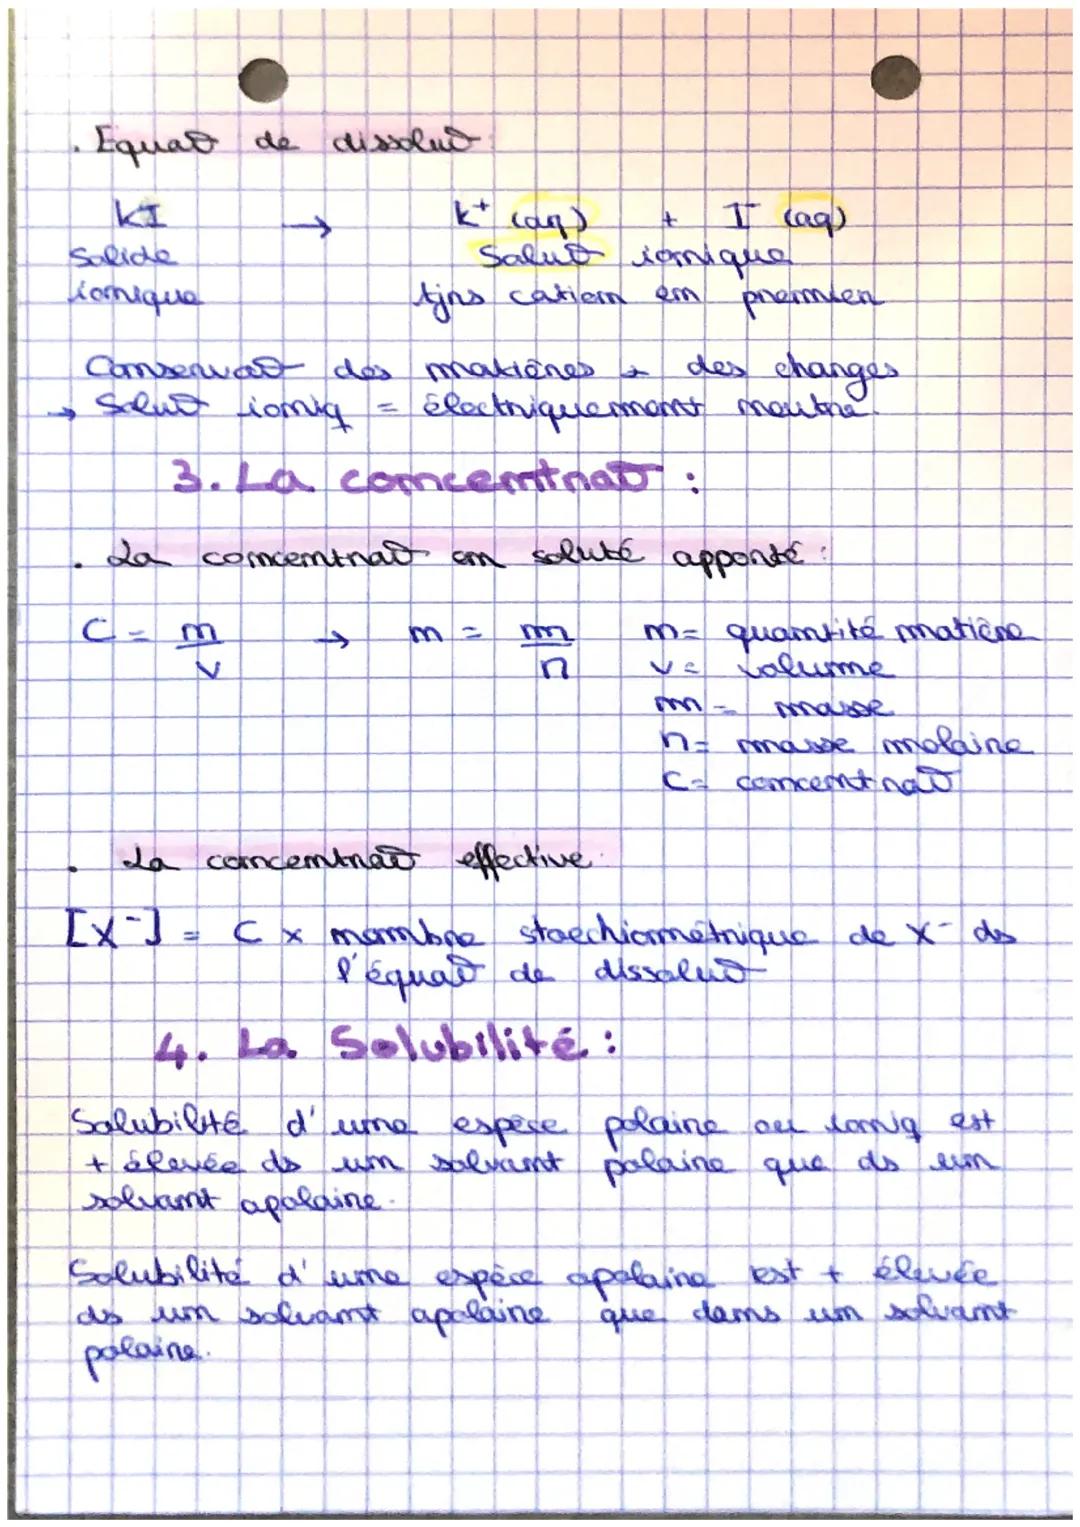 . Equat° de dissolut°:
KI → K⁺ (aq) + I⁻ (aq)
Solide Solut° ionique
ionique tjrs cation en premier
Conservat° des matières + des charges
→ Solut° ioniq = électriquement neutre.
3. La concentrat° :
. La concentrat° en soluté apporté :
C = n/V → n = m/M n= quantité matière
V= volume
m = masse
M= masse molaire
C= concentrat°
. La concentrat° effective:
[X⁻] = C x nombre stoechiométrique de X⁻ ds
l'équat° de dissolut°
4. La Solubilité :
Solubilité d'une espèce polaire ou ioniq est
+ élevée ds un solvant polaire que ds un
solvant apolaire.
Solubilité d'une espèce apolaire est + élevée
ds un solvant apolaire que dans un solvant
polaire.